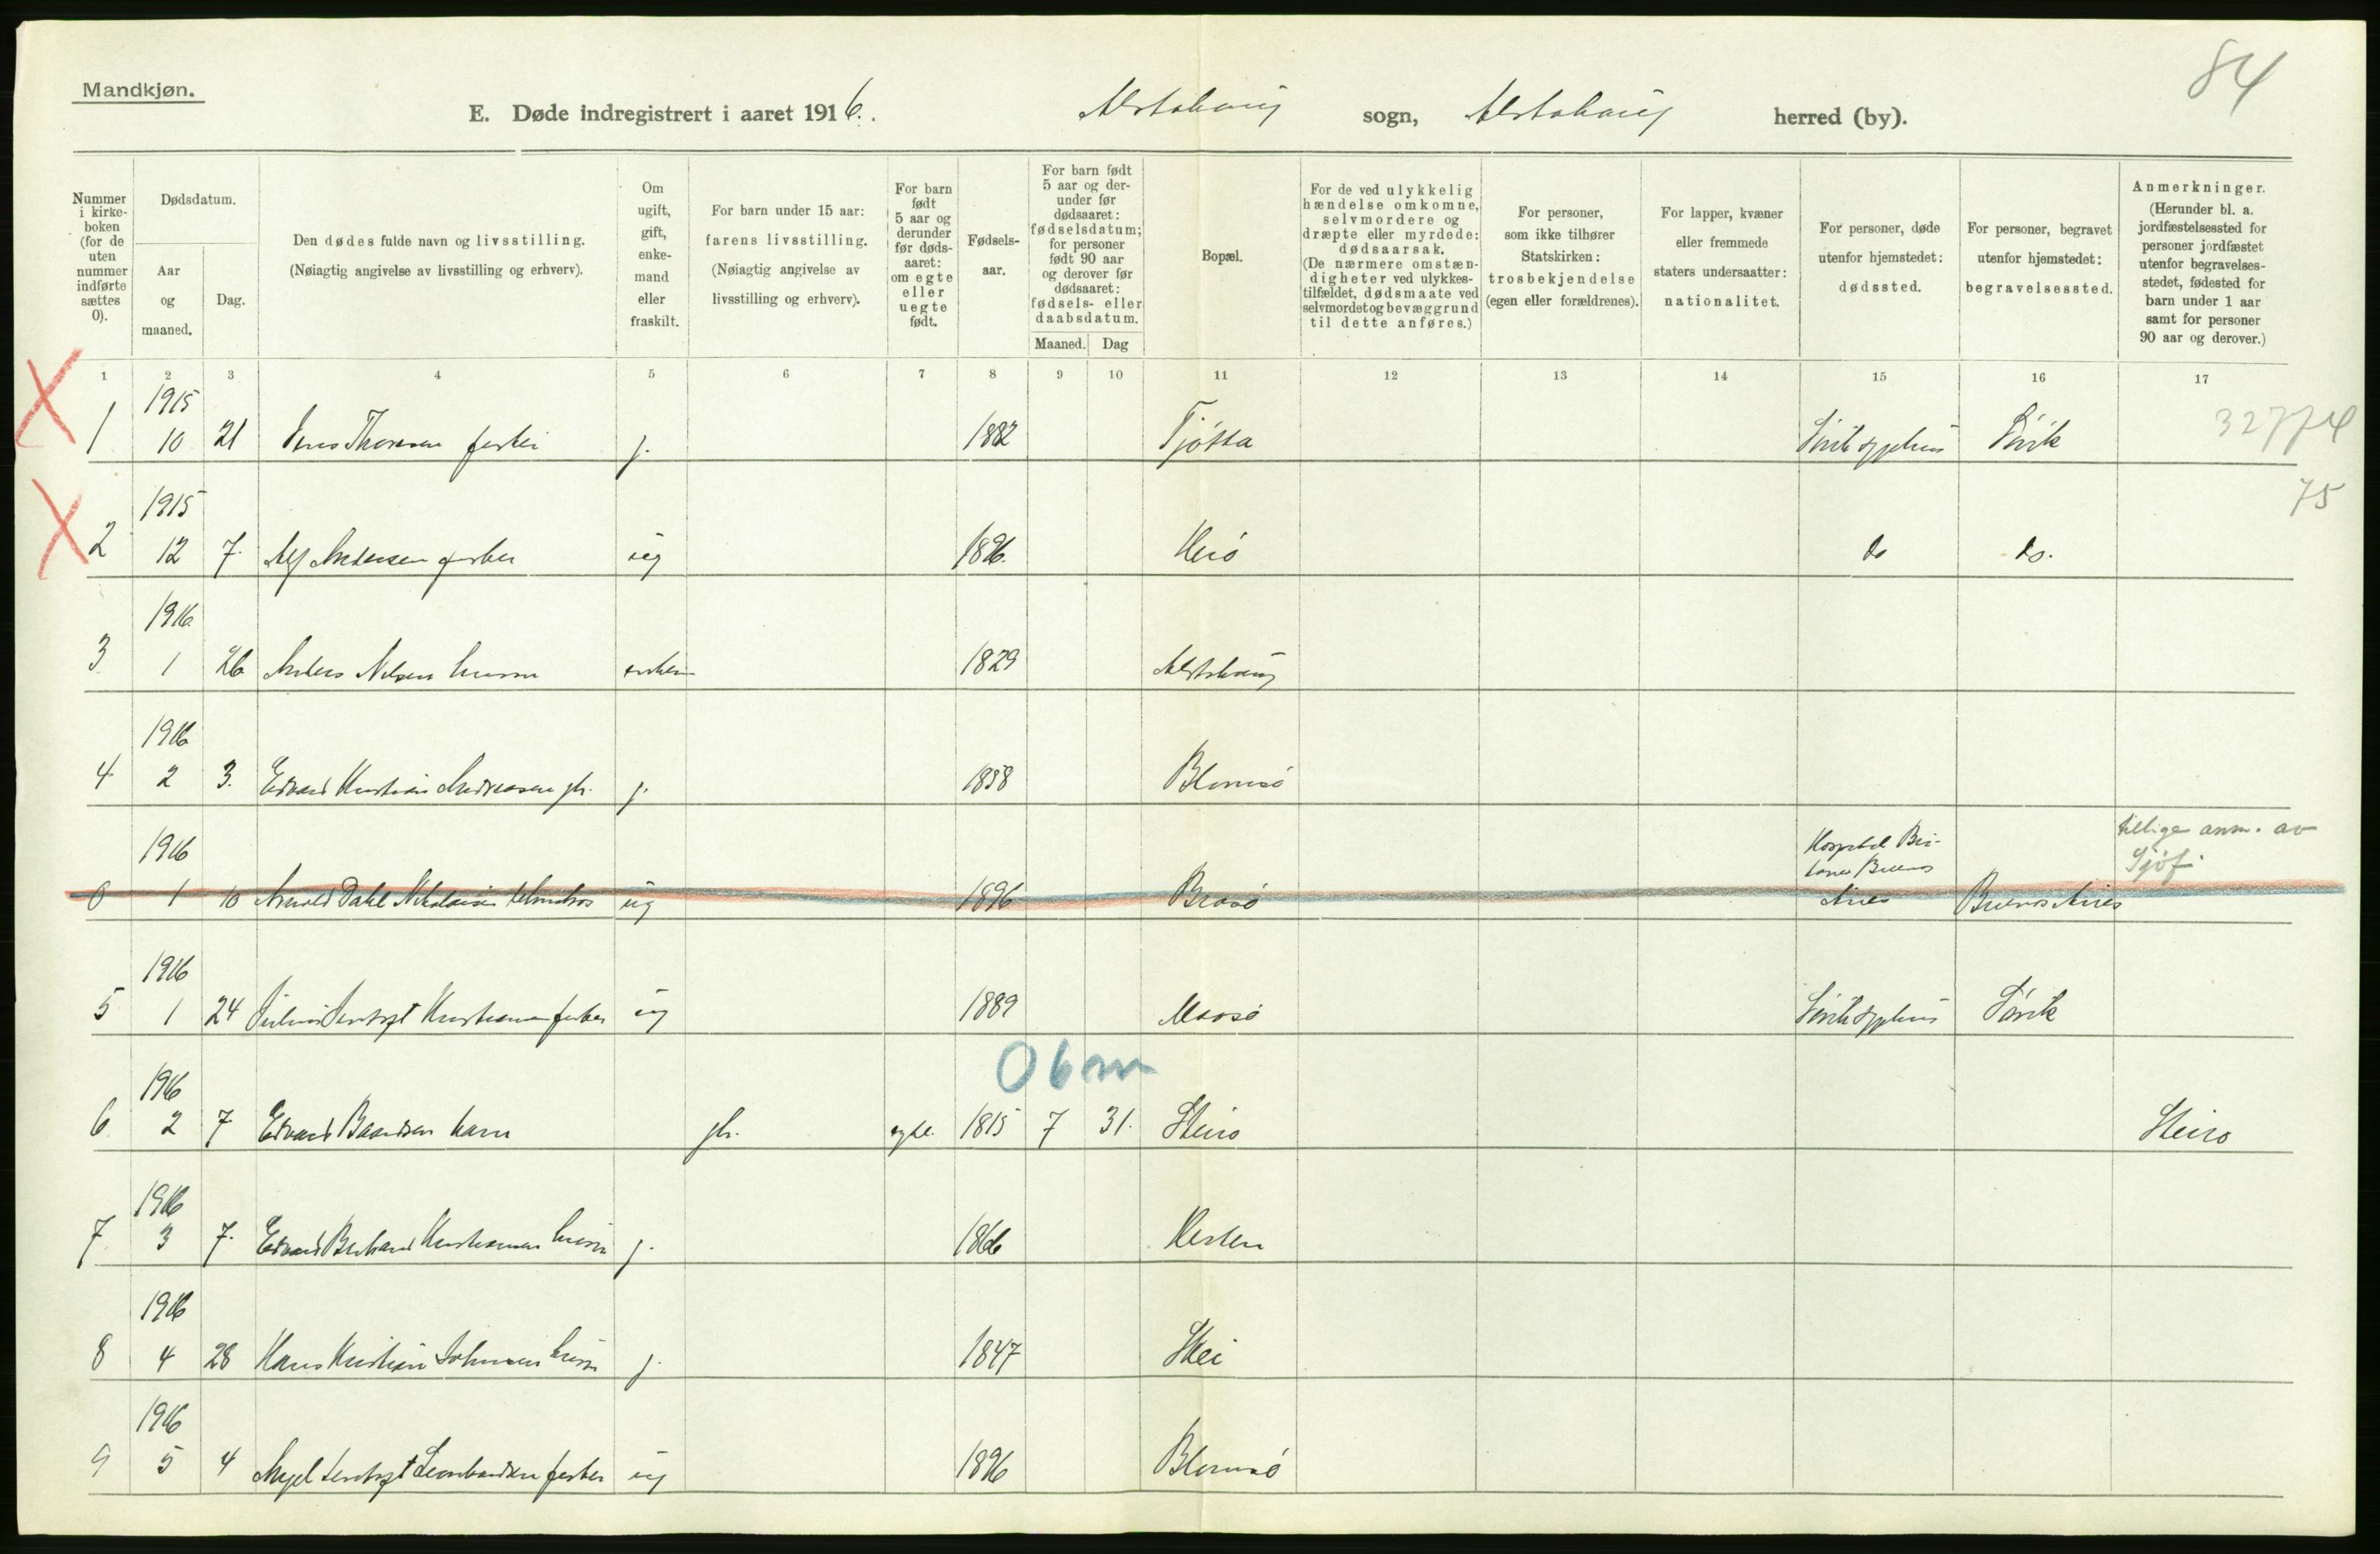 84
Mandkjøn.
E. Døde indregistrert i aaret 1916. Alstahaug sogn, Alstahaug herred (by).
Nummer i kirke-boken (for de uten nummer indførte sættes 0).
Dødsdatum.
Aar og maaned.
Dag.
Den dødes fulde navn og livsstilling.
(Nøiagtig angivelse av livsstilling og erhverv).
Om ugift, gift, enke-mand eller fraskilt.
For barn under 15 aar:
farens livsstilling.
(Nøiagtig angivelse av
livsstilling og erhverv).
For barn født 5 aar og derunder før døds-aaret: om egte eller uegte født.
Fødsels-aar.
For barn født 5 aar og der-under før dødsaaret: fødselsdatum; for personer født 90 aar og derover før dødsaaret: fødsels- eller daabsdatum.
Maaned. Dag
Bopæl.
For de ved ulykkelig hændelse omkomne, selvmordere og dræpte eller myrdede: dødsaarsak. (De nærmere omstæn-digheter ved ulykkes-tilfældet, dødsmaate ved selvmordet og bevæggrund til dette anføres.)
For personer, som ikke tilhører Statskirken: trosbekjendelse (egen eller forældrenes).
For lapper, kvæner eller fremmede staters undersaatter: nationalitet.
For personer, døde utenfor hjemstedet: dødssted.
For personer, begravet utenfor hjemstedet: begravelsessted.
Anmerkninger.
(Herunder bl. a. jordfæstelsessted for personer jordfæstet utenfor begravelses-stedet, fødested for barn under 1 aar samt for personer 90 aar og derover.)
1 2 3 4 5 6 7 8 9 10 11 12 13 14 15 16 17
1915
1 10 21 Thoresen g. 1882 Tjøtta Søvik sygehus Søvik 32774
75
1915
2 12 7. Alf Andersen fisker ug 1896. Herø do do.
1916
3 1 26 Anders Nilsen 1829 Alstahaug
1916
4 2 3. Edvard Kristian Andreasen g. 1858 Blomsø
1916
0 1 10 Arnold Dahl Nikolaisen ug 1896 Brasø Hospital Buenos Aires Buenos Aires tillige anm. av
Sjøf.
1916
5 1 24 Kristiansen fisker ug 1889 Søvik sygehus Søvik
0 b m
1916
6 2 7 Edvard Baardsen barn egte. 1815 7 31.
1916
7 3 7. Edvard Kristiansen g. 1866
1916
8 4 28 Hans Kristian Johnsen g. 1847
1916
9 5 4 fisker ug 1896 Blomsø